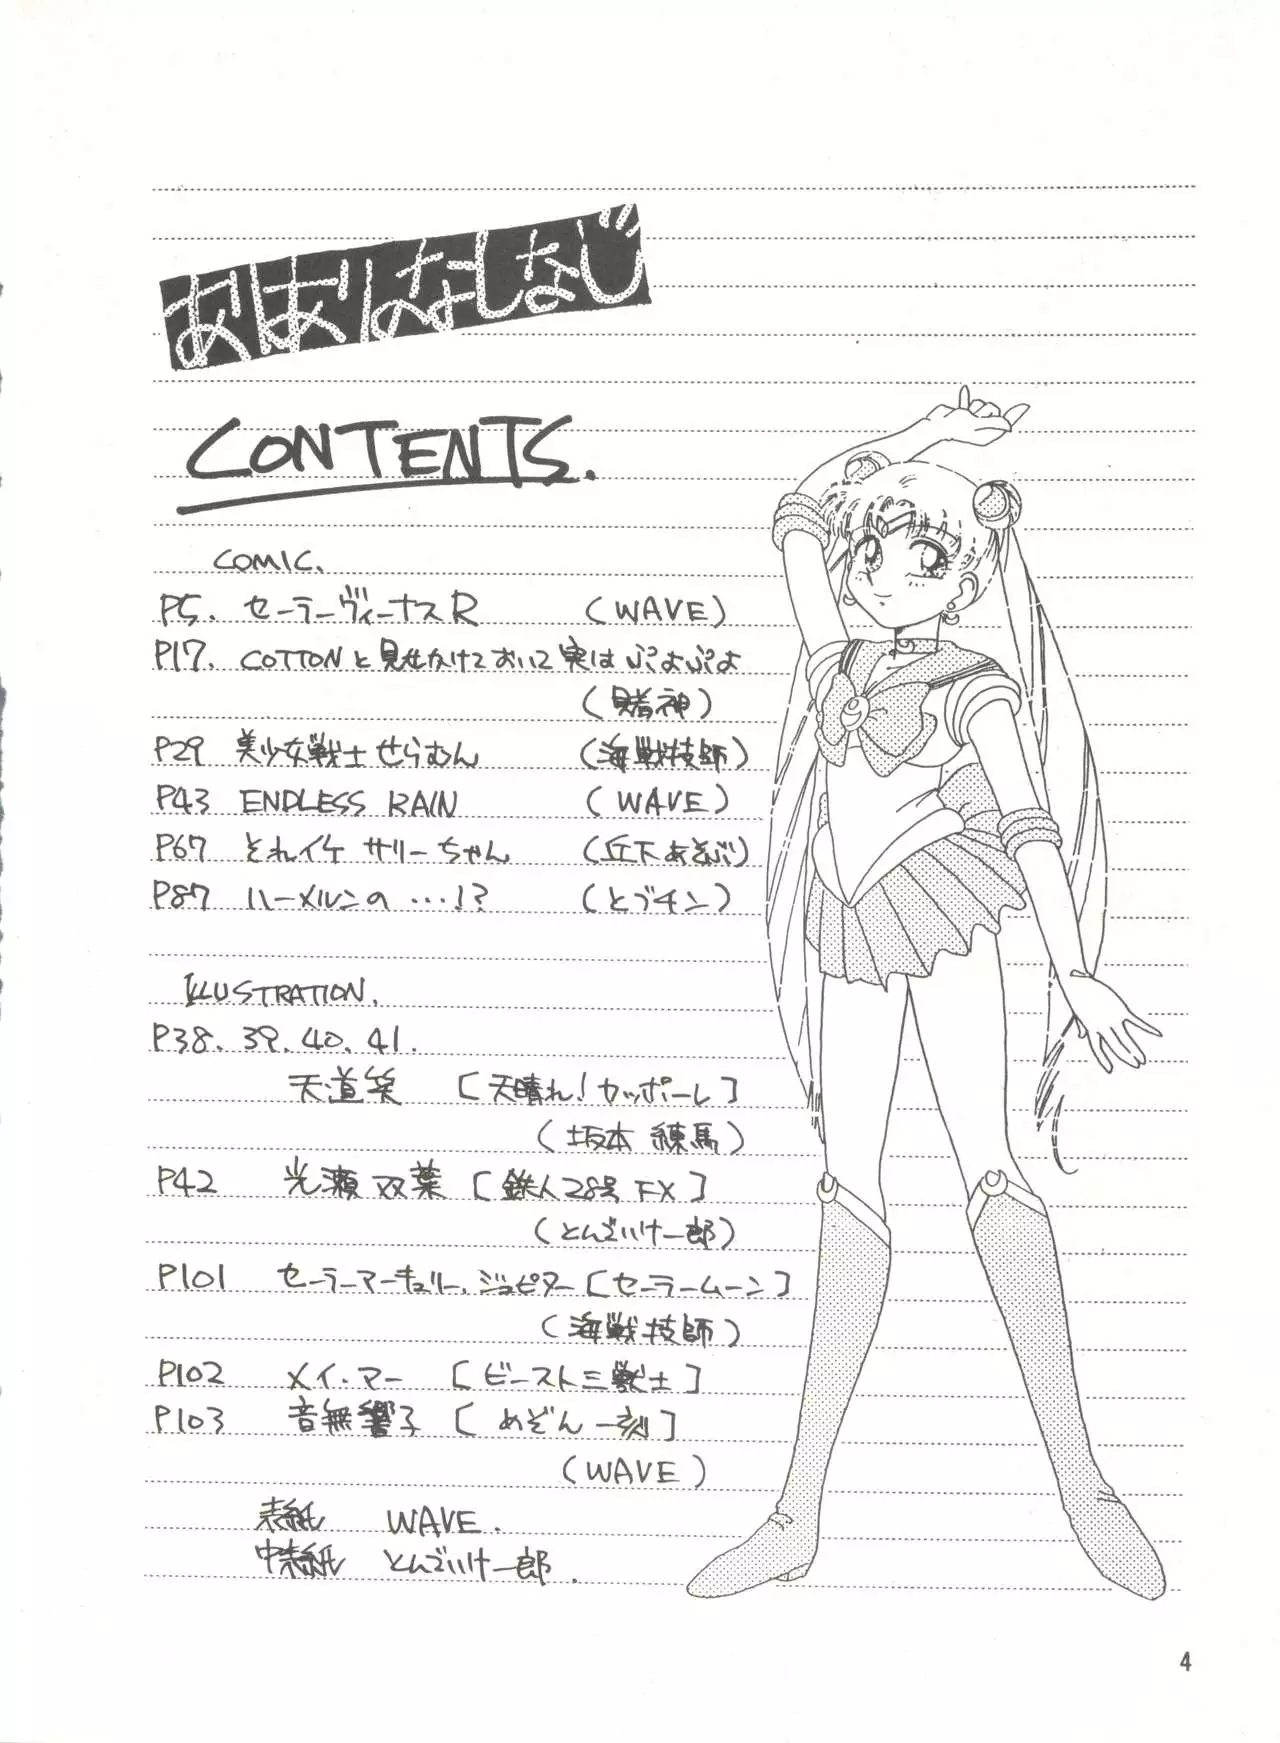 CONTENTS.
COMIC.
P5. セーラーヴィーナスR (WAVE)
P17. COTTONと見せかけておいて実はぷよぷよ
(賭神)
P29 美少女戦士せらむん (海戦技師)
P43 ENDLESS RAIN (WAVE)
P67 それイケ サリーちゃん (丘下あそぶ)
P87 ハーメルンの…!? (とブチン)
ILLUSTRATION.
P38.39.40.41.
天道笑 [天晴れ!カッポーレ]
(坂本 練馬)
P42 光瀬 双葉 [鉄人28号FX]
(とんでいけ一郎)
P101 セーラーマーキュリー.ジュピター[セーラームーン]
(海戦技師)
P102 メイ・マー [ビースト三獣士]
P103 音無響子 [めぞん一刻]
(WAVE)
表紙 WAVE.
中表紙 とんでいけ一郎.
4